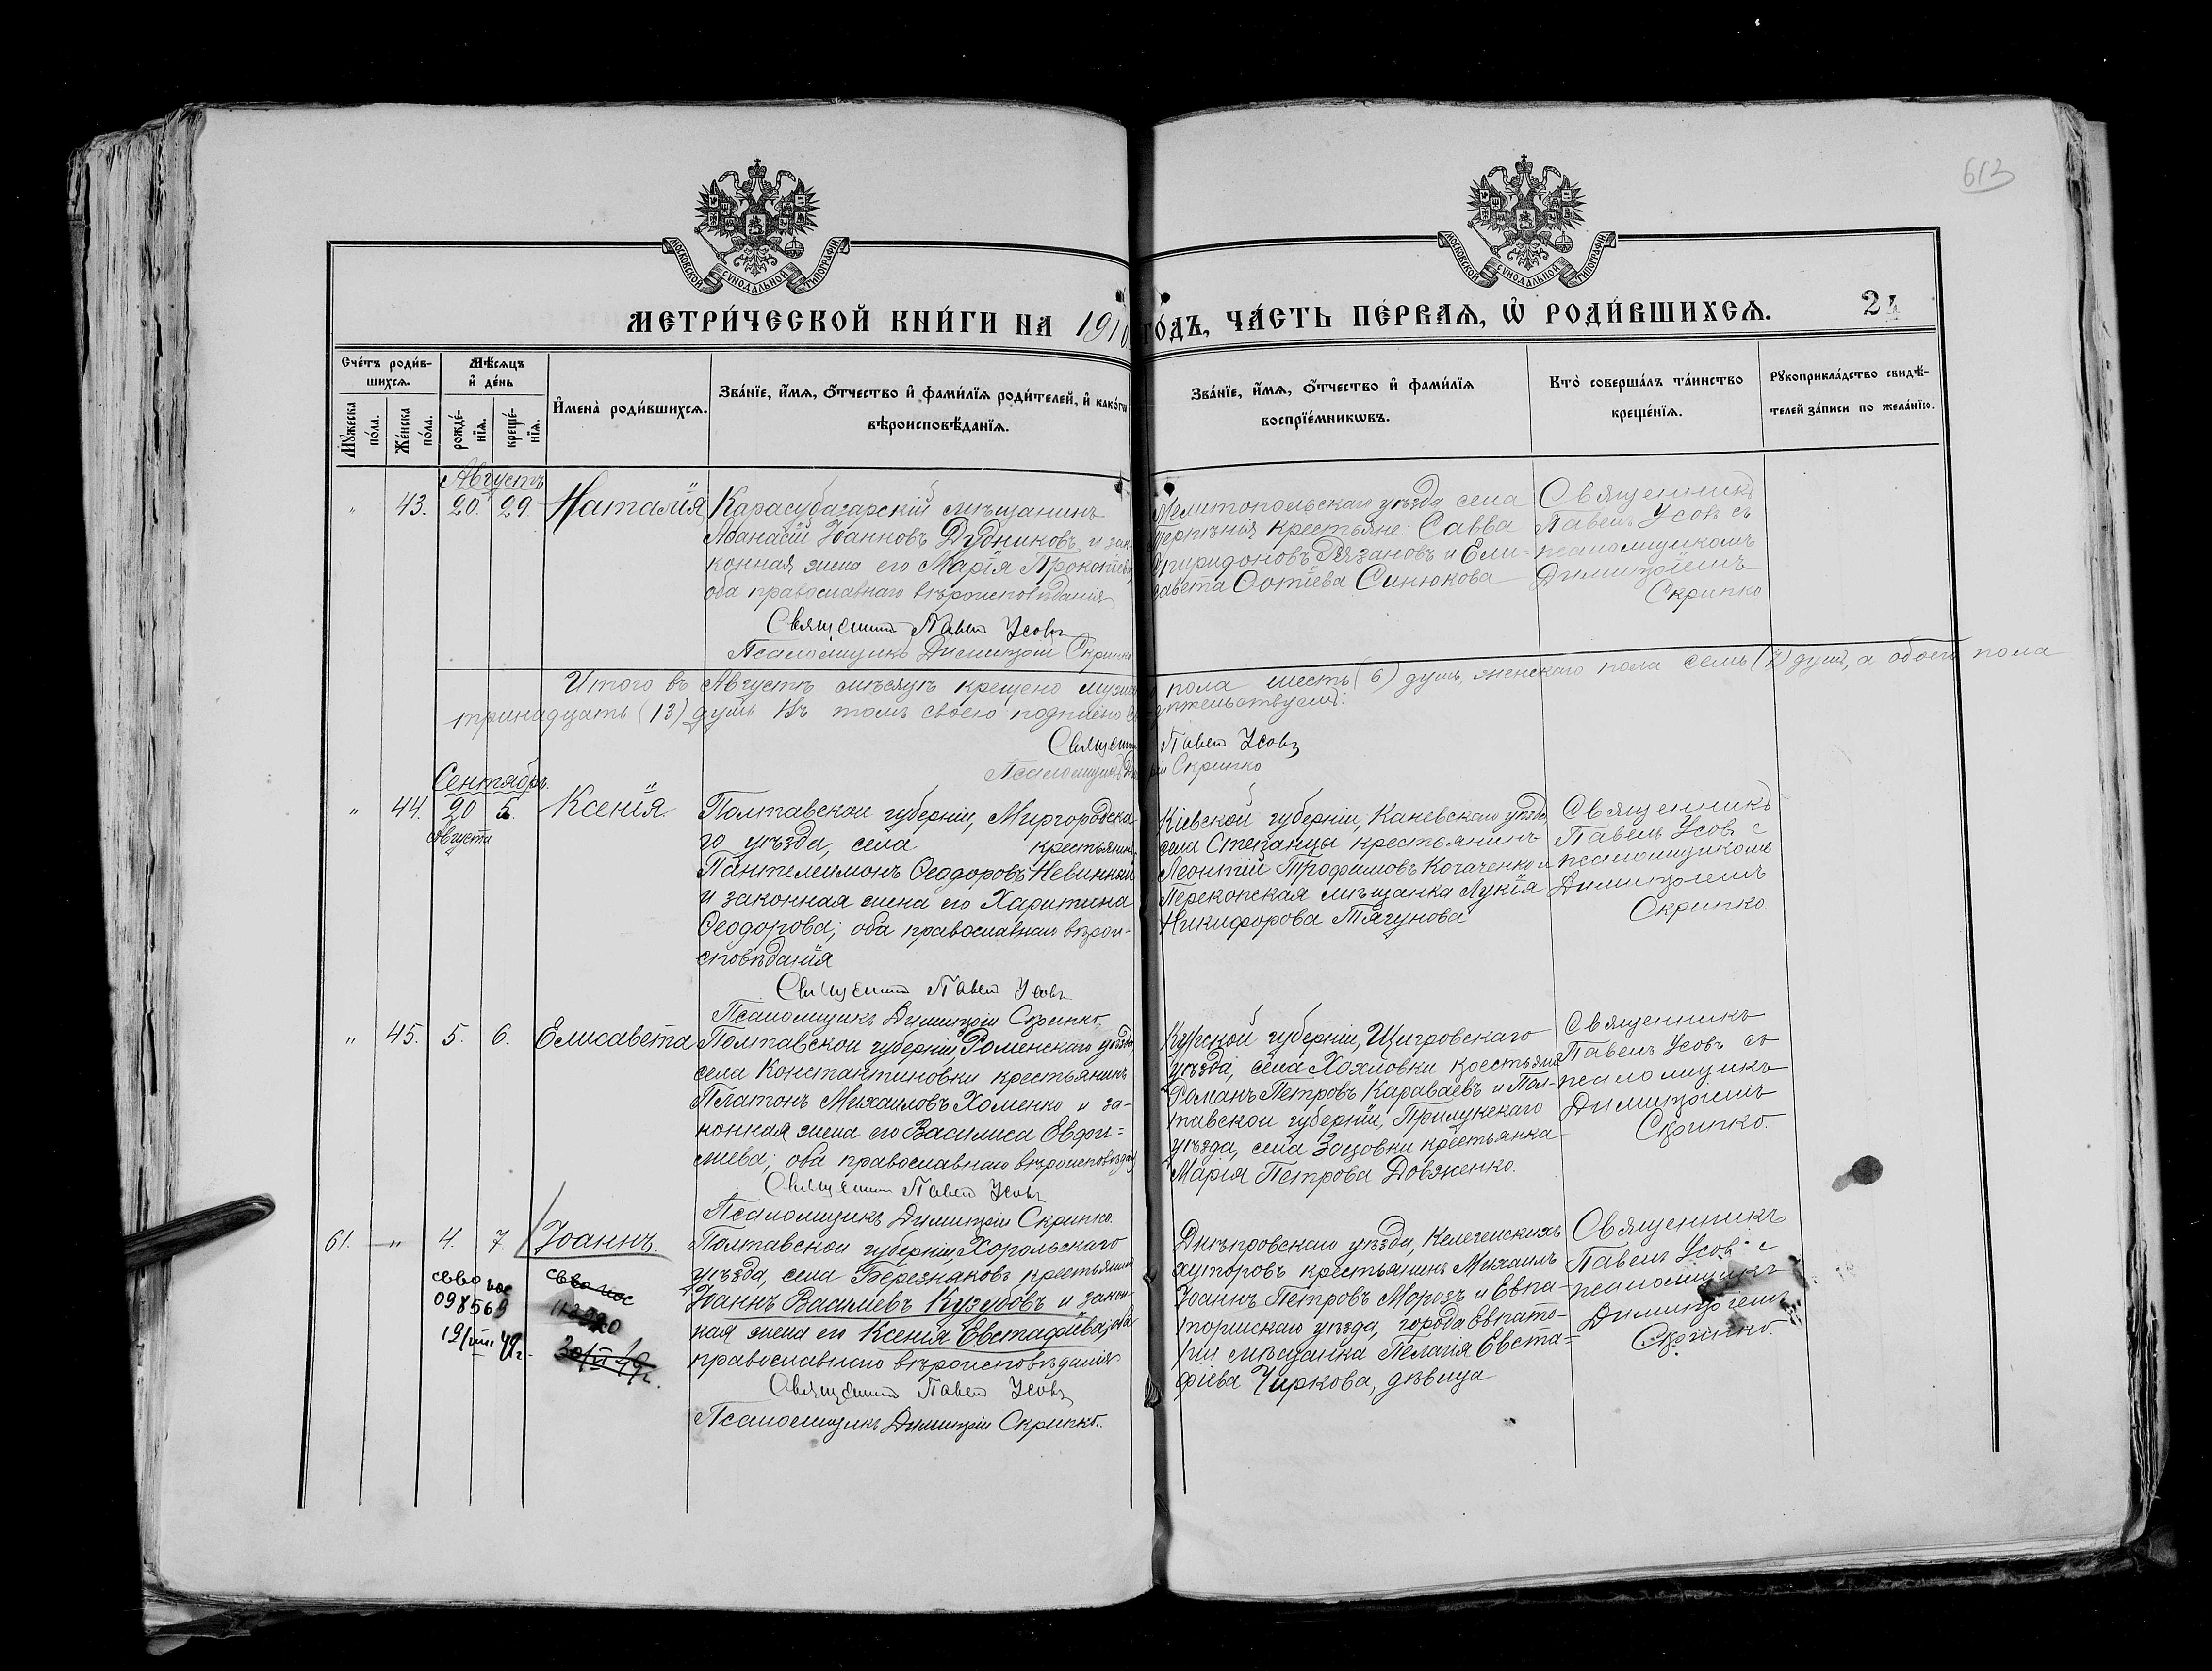 613
МОСКОВСКОЙ СѴНОДАЛЬНОЙ ТИПОГРАФІИ
МОСКОВСКОЙ СѴНОДАЛЬНОЙ ТИПОГРАФІИ
МЕТРИ́ЧЕСКОЙ КНИ́ГИ НА 1910 ГО́ДЪ, ЧА́СТЬ ПЕ́РВАѦ, Ѡ҆ РОДИ́ВШИХСѦ.
Сче́тъ роди́в-
шихсѧ.
Мꙋ́жеска по́ла.
Же́нска по́ла.
Мѣ́сѧцъ и҆ де́нь
рожде́-
нїѧ.
креще́-
нїѧ.
И҆мена̀ роди́вшихсѧ.
Зва́нїе, и҆́мѧ, ѻ҆́тчество и҆ фами́лїѧ роди́телей, и҆ како́гѡ
вѣроисповѣ́данїѧ.
Зва́нїе, и҆́мѧ, ѻ҆́тчество и҆ фами́лїѧ
воспрїе́мникѡвъ.
Кто̀ соверша́лъ та́инство
креще́нїѧ.
Рꙋкоприкла́дство свидѣ́-
телей за́писи по жела́нїю.
Августъ
" 43. 20. 29. Наталія
Карасубазарскій мѣщанинъ
Аѳанасій Іоанновъ Дудниковъ и за-
конная жена его Марія Прокопіева,
оба православнаго вѣроисповѣданія
Священникъ Павелъ Усовъ
Псаломщикъ Димитрій Скрипко
Мелитопольскаго уѣзда села
крестьяне: Савва
Спиридоновъ Рязановъ и Ели-
савета Фотіева Синюкова
Священникъ
Павелъ Усовъ съ
псаломщикомъ
Димитріемъ
Скрипко
Итого въ Августѣ мѣсяцѣ крещено мужска пола шесть (6) душъ, женскаго пола семь (7) душъ, а обоего пола
тринадцать (13) душъ въ томъ своею подписью свидѣтельствуемъ:
Священникъ Павелъ Усовъ
Псаломщикъ Димитрій Скрипко
Сентябрь.
" 44. 20 5. Ксенія.
Августа
Полтавской губерніи, Миргородска-
го уѣзда, села крестьянинъ
Пантелеимонъ Ѳеодоровъ Невинный
и законная жена его Харитина
Ѳеодорова; оба православнаго вѣрои-
сповѣданія
Священникъ Павелъ Усовъ
Псаломщикъ Димитрій Скрипко.
Кіевской губерніи, Каневскаго уѣзда
села Степанцы крестьянинъ
Леонтій Трофимовъ Когаченко и
Перекопская мѣщанка Лукія
Никифорова Тягунова
Священникъ
Павелъ Усовъ с
псаломщикомъ
Димитріемъ
Скрипко.
" 45. 5. 6. Елисавета
Полтавской губерніи, Роменскаго уѣзда
села Константиновки крестьянинъ
Платонъ Михаиловъ Хоменко и за-
конная жена его Василиса Евфи-
міева; оба православнаго вѣроисповѣданія
Священникъ Павелъ Усовъ
Псаломщикъ Димитрій Скрипко.
Курской губерніи, Щигровскаго
уѣзда, села Хохловки крестьянинъ
Романъ Петровъ Караваевъ и Пол-
тавской губерніи, Прилукскаго
уѣзда, села крестьянка
Марія Петрова Довженко.
Священникъ
Павелъ Усовъ со
псаломщикъ
Димитріемъ
Скрипко.
61. — " 4. 7. Іоаннъ.
Полтавской губерніи, Хорольскаго
уѣзда, села Березняковъ крестьянинъ
Іоаннъ Василіевъ Кузубовъ и закон-
ная жена его Ксенія Евстафіева, оба
православнаго вѣроисповѣданія
Священникъ Павелъ Усовъ
Псаломщикъ Димитрій Скрипко.
Днѣпровскаго уѣзда, Келегейскихъ
хуторовъ крестьянинъ Михаилъ
Іоаннъ Петровъ Морозъ и Евпа-
торійскаго уѣзда, города Евпато-
ріи мѣщанка Пелагія Евста-
фіева Чиркова, дѣвица
Священникъ
Павелъ Усовъ с
псаломщикъ
Димитріемъ
Скрипко.
098569